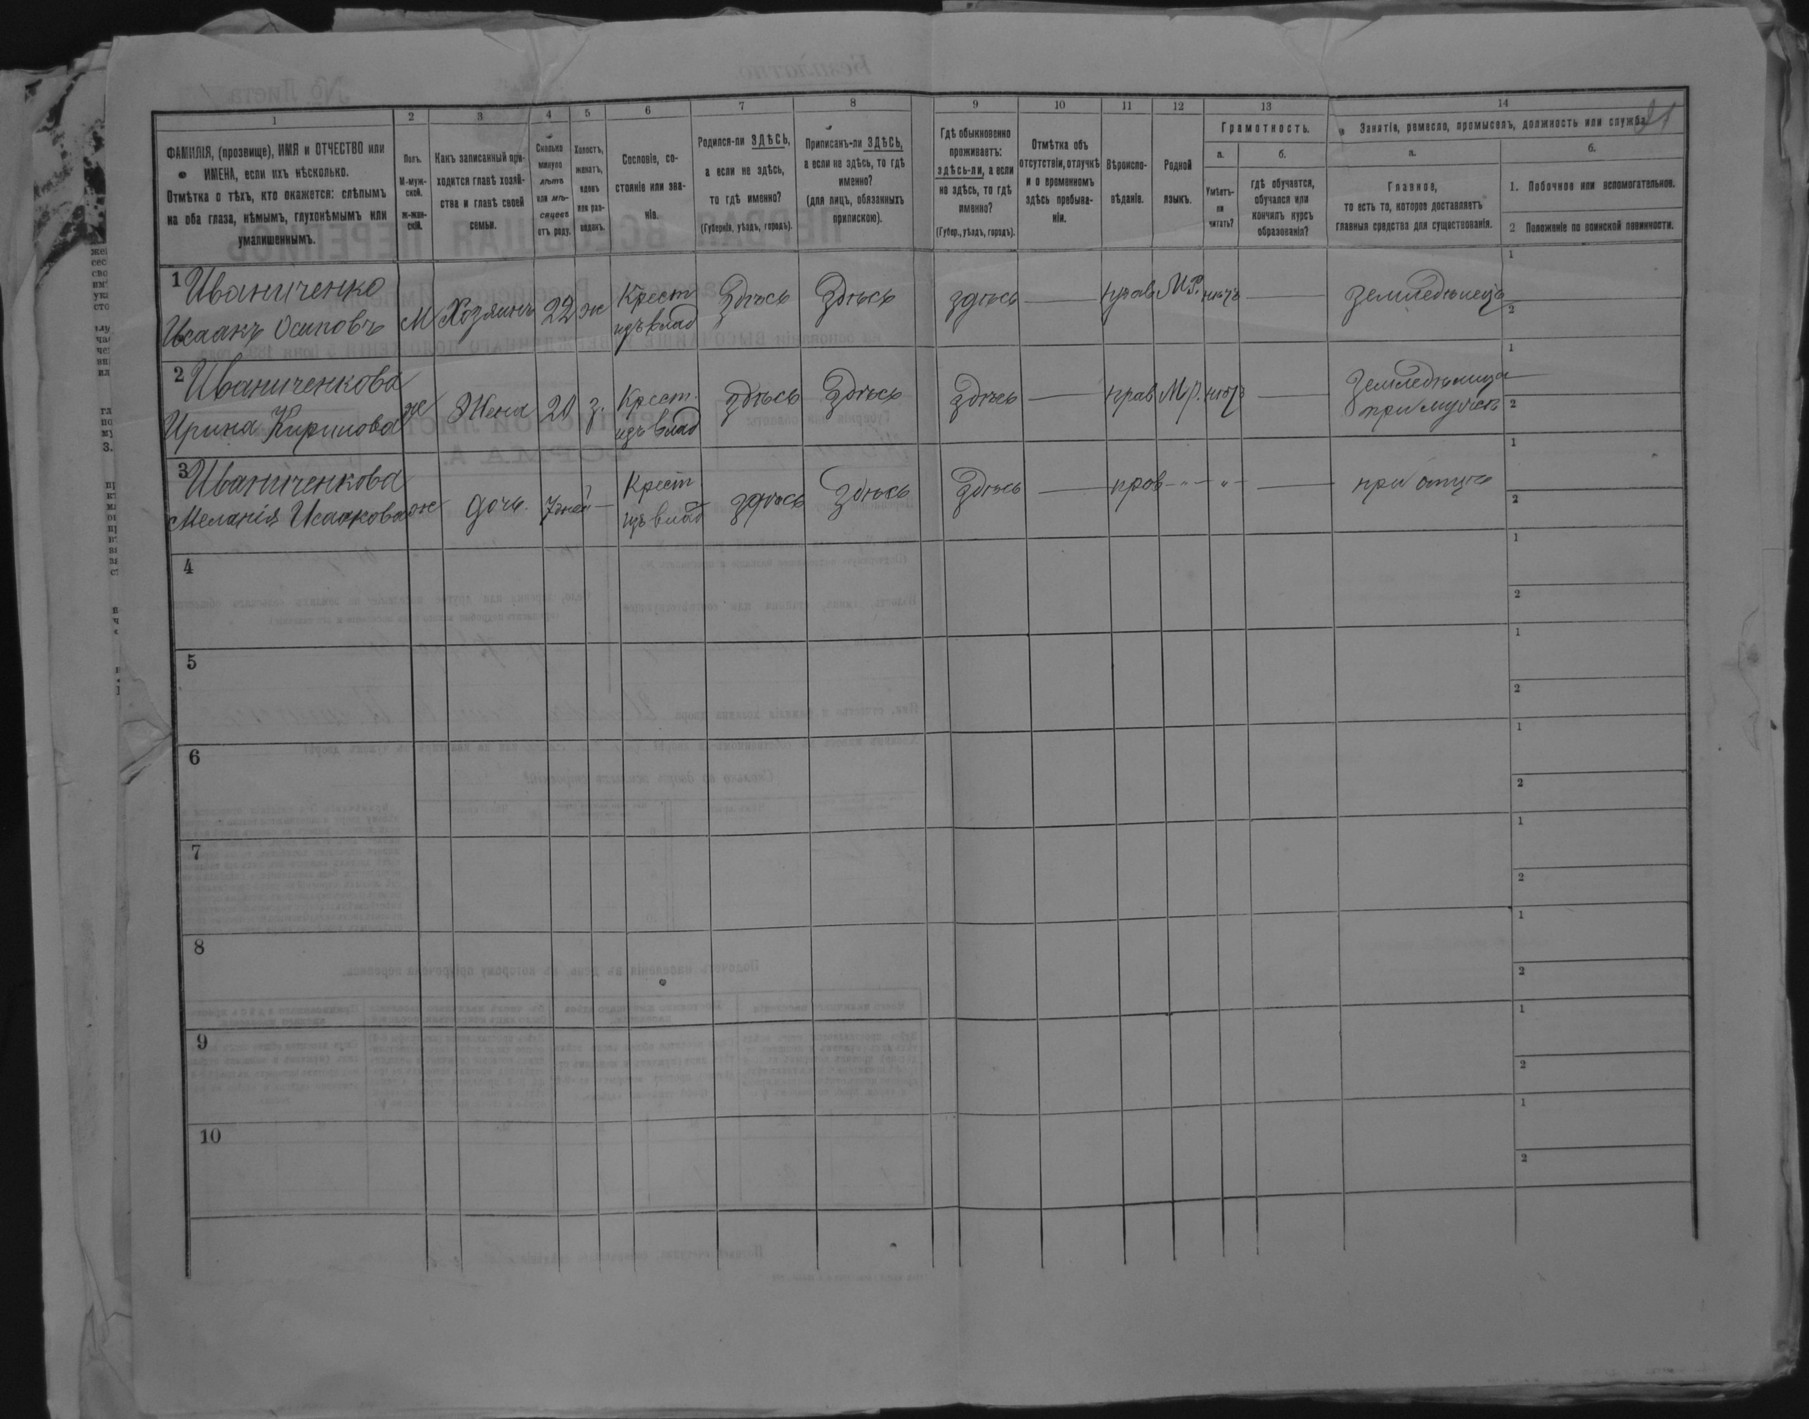 1 2 3 4 5 6 7 8 9 10 11 12 13 14
21
ФАМИЛІЯ, (прозвище), ИМЯ и ОТЧЕСТВО или
ИМЕНА, если ихъ нѣсколько.
Отмѣтка о тѣхъ, кто окажется: слѣпымъ
на оба глаза, нѣмымъ, глухонѣмымъ или
умалишеннымъ.
Полъ.
М-муж-
ской.
Ж-жен-
скій.
Какъ записанный при-
ходится главѣ хозяй-
ства и главѣ своей
семьи.
Сколько
минуло
лѣтъ
или мѣ-
сяцевъ
отъ роду.
Холостъ,
женатъ,
вдовъ
или раз-
веденъ.
Сословіе, со-
стояніе или зва-
ніе.
Родился-ли ЗДѢСЬ,
а если не здѣсь,
то гдѣ именно?
(Губернія, уѣздъ, городъ).
Приписанъ-ли ЗДѢСЬ,
а если не здѣсь, то гдѣ
именно?
(для лицъ, обязанныхъ
припискою).
Гдѣ обыкновенно
проживаетъ:
здѣсь-ли, а если
не здѣсь, то гдѣ
именно?
(Губер., уѣздъ, городъ).
Отмѣтка объ
отсутствіи, отлучкѣ
и о временномъ
здѣсь пребыва-
ніи.
Вѣроиспо-
вѣданіе.
Родной
языкъ.
Грамотность.
а.
Умѣетъ-
ли
читать?
б.
гдѣ обучается,
обучался или
кончилъ курсъ
образованія?
Занятіе, ремесло, промыселъ, должность или служба.
а.
Главное,
то есть то, которое доставляетъ
главныя средства для существованія.
б.
1. Побочное или вспомогательное.
2 Положеніе по воинской повинности.
1 Иваниченко
Исаакъ Осиповъ
М Хозяинъ 22 ж Крест
изъ влад
Здѣсь Здѣсь здѣсь — прав М.Р. нѣтъ — земледѣлецъ
1
2
2 Иваниченкова
Ирина Кирилова
ж Жена 20 з. Крест.
изъ влад
здѣсь Здѣсь Здѣсь — прав М.Р. нѣтъ — земледѣлица
при мужѣ
1
2
3 Иваниченкова
Меланія Исаакова
ж дочь. 7 дней — Крест
изъ влад
здѣсь Здѣсь Здѣсь — прав -"- -"- — при отцѣ
1
2
4
1
2
5
1
2
6
1
2
7
1
2
8
1
2
9
1
2
10
1
2